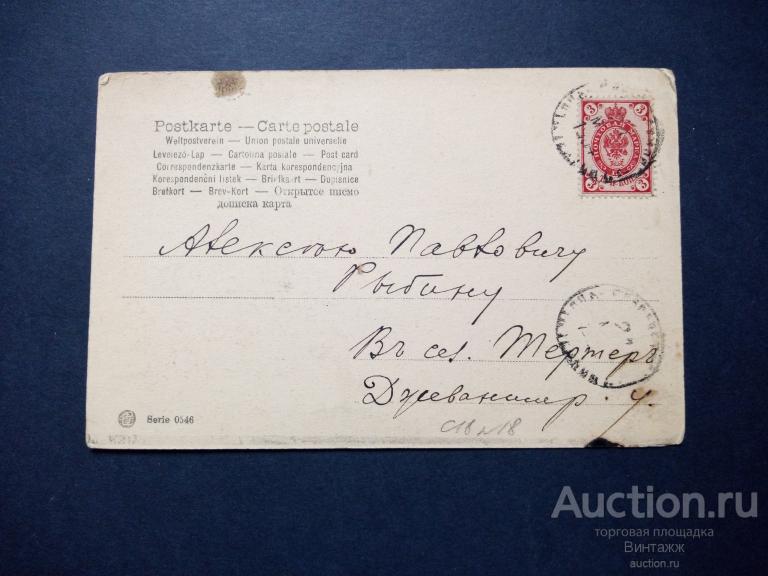 Postkarte — Carte postale
Weltpostverein — Union postale universelle
Levelező-Lap — Cartolina postale — Post card
Correspondenzkarte — Karta korespondencyjna
Korespondenční listek — Briefkaart — Dopisnice
Brefkort — Brev-Kort — Открытое писмо
дописна карта
3 3
ПОЧТОВАЯ МАРКА
3 3
Алексѣю Павловичу
Рыбину
Въ сел. Тертеръ
Джеваншир. у.
Serie 0546
Auction.ru
торговая площадка
Винтажж
auction.ru